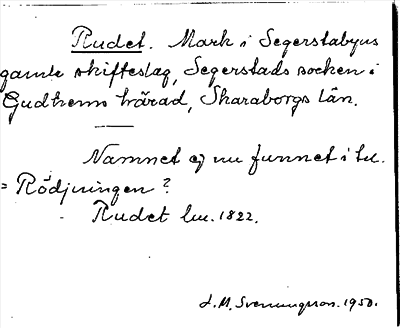 Rudet. Mark i Segerstabyns
gamle skifteslag, Segerstads socken i
Gudhems härad, Skaraborgs län.
Namnet ej nu funnet i tal.
= Rödjningen?
Rudet lm. 1822.
J. M. Svenungsson. 1950.